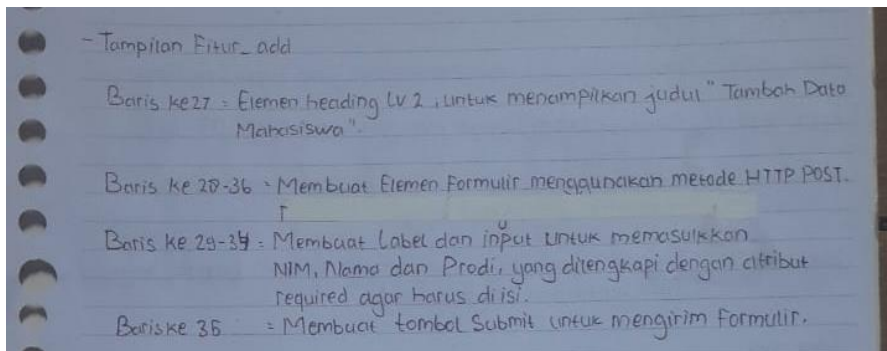 - Tampilan Fitur_add
Baris ke27 = Elemen heading lv 2, untuk menampilkan judul "Tambah Data
Mahasiswa".
Baris ke 28-36 = Membuat Elemen Formulir menggunakan metode HTTP POST.
Baris ke 29-34 = Membuat Label dan input untuk memasukkan
NIM, Nama dan Prodi, yang dilengkapi dengan attribut
required agar harus diisi.
Baris ke 35 = Membuat tombol Submit untuk mengirim formulir.